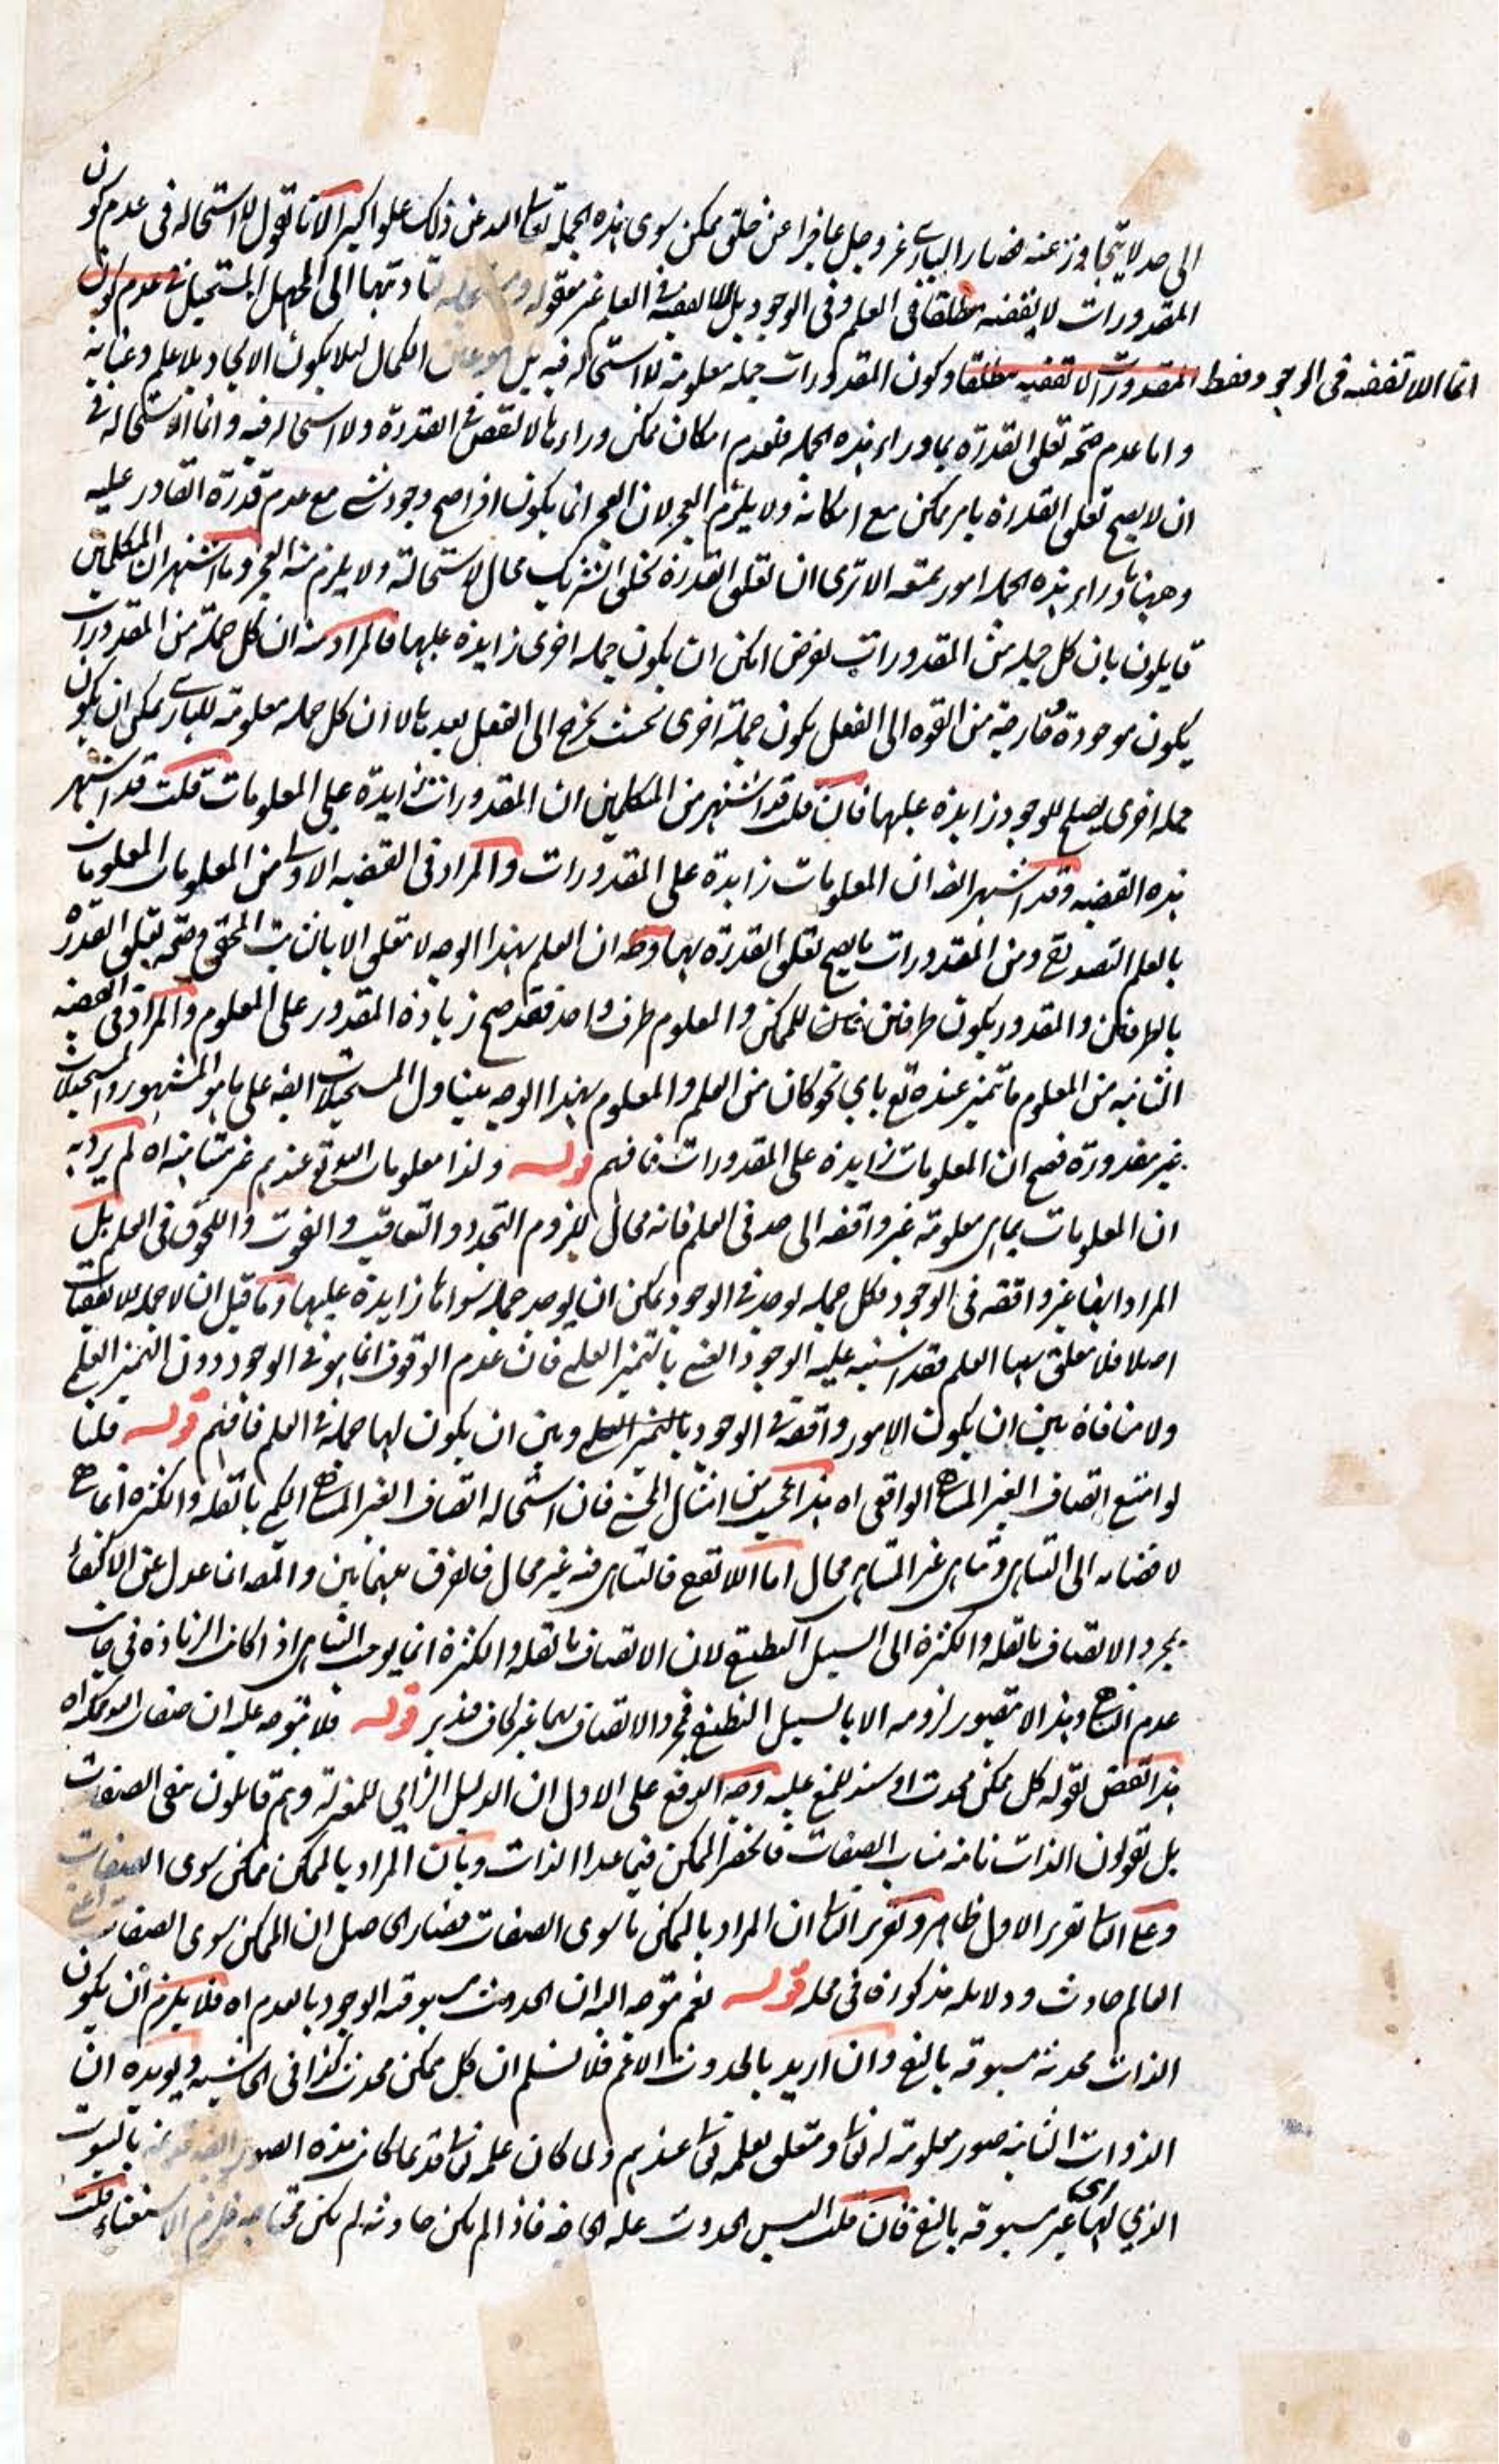 الى حد لا يتجاوز عنه فصار الباري عز وجل عاجزا عن خلق ممكن سوى هذه الجملة تعالى الله عن ذلك علوا كبيرا لانا نقول لا استحاله فى عدم كون
المقدورات لا يقفيه مطلقا فى العلم وفى الوجود بل اللايقفيه فى العلم غير معقوله تأديتها الى الجهل المستحيل فى عدم كون
المقدورات لا تقفيه مطلقا وكون المقدورات جمله معلومة لا استحاله فيه بل هو عين الكمال ليلا يكون الايجاد بلا علم وعناية
انما اللاتقفيه فى الوجود فقط
واما عدم صحه تعلق القدرة بما وراء هذه الجمله فلعدم امكان ممكن وراءها لا لنقص فى القدرة ولا استحاله فيه وانما الاستحاله فى
ان لا يصح تعلق القدرة بامر ممكن مع امكانه ولا يلزم العجز لان العجز انما يكون اذا صح وجود شئ مع عدم قدرة القادر عليه
وههنا ما وراء هذه الجمله امور ممتنعه الا ترى ان تعلق القدرة بخلق الشريك محال لاستحالته ولا يلزم منه العجز وما اشتهر ان المتكلمين
قايلون بان كل جمله من المقدورات يفرض امكن ان يكون جمله اخرى زايدة عليها فالمراد منه ان كل جملة من المقدورات
يكون موجودة خارجة من القوه الى الفعل يكون جملة اخرى بحيث يخرج الى الفعل بعدها لا ان كل جمله معلومة للباري يمكن ان يكون
جمله اخرى يصلح للوجود زايدة عليها فان قلت قد اشتهر من المتكلمين ان المقدورات زايدة على المعلومات قلت قد اشتهر
هذه القضيه وقد اشتهر ايضا ان المعلومات زايدة على المقدورات والمراد فى القضيه الاولى من المعلومات المعلومات
بالعلم التصديقي ومن المقدورات ما يصح تعلق القدرة بها وظ ان العلم بهذا الوجه لا يتعلق الا بالثابت المحقق وصحه تعلق القدرة
بالطرفين والمقدور يكون طرفين للممكن والمعلوم طرف واحد فقد صح زيادة المقدور على المعلوم والمراد فى القضيه
الثانيه من المعلوم ما تميز عنده تع باي نحو كان من العلم والمعلوم بهذا الوجه يتناول المستحيلات ايضا على ما هو المشهور والمستحيلات
غير مقدورة فصح ان المعلومات زايدة على المقدورات فافهم قوله ولذا معلومات الله تع عندهم غير متناهية اه لم يرد به
ان المعلومات بما هى معلومة غير واقفه الى حد فى العلم فانه محال للزوم التجدد والتعاقب والفوت واللحوق فى العلم بل
المراد انها غير واقفه فى الوجود فكل جمله يوجد فى الوجود يمكن ان يوجد جمله سواها زايدة عليها وما قيل ان لا جمله للايقفيات
اصلا فلا يتعلق بها العلم فقد اشتبه عليه الوجود العينى بالتميز العلمى فان عدم الوقوف انما هو فى الوجود دون التميز العلمى
ولا منافاة بين ان يكون الامور واقفة فى الوجود بالتميز العلمى وبين ان يكون لها جملة فى العلم فافهم قوله قلنا
لو امتنع اتصاف الغير المتناهى الواقعى اه هذا عجيب من امثال المحشى فان استحاله اتصاف الغير المتناهى الكمى بالقله والكثره انما هى
لافضائه الى التناهى وتناهى غير المتناهى محال اما اللاتقفى فالتناهى فيه غير محال فالفرق بينهما بين والمص انما عدل عن الاكتفاء
بمجرد الاتصاف بالقله والكثرة الى السبيل التطبيق لان الاتصاف بالقله والكثرة انما يوجب التناهى اذا كان الزيادة فى جانب
عدم التناهى وهذا لا يتصور لزومه الا بالسبيل التطبيق فمجرد الاتصاف بهما غير كاف فتدبر قوله فلا يتوجه عليه ان صفات الله ممكنه اه
هذا نقض لقوله كل ممكن محدث او سند للمنع عليه وجه الدفع على الاول ان الدليل الزامي للمعتزلة وهم قايلون بنفى الصفات
بل يقولون الذات نائبه مناب الصفات فانحصر الممكن فيما عدا الذات وبان المراد بالممكن ممكن سوى الصفات
وعلى الثانى تقرير الاول ظاهر وتقرير الثانى ان المراد بالممكن ما سوى الصفات فصار الحاصل ان الممكن سوى الصفات اعنى
العالم حادث ودلايله مذكورة فى محله قوله نعم يتوجه اليه ان الحدوث مسبوقية الوجود بالعدم اه فلا يلزم ان يكون
الذات محدثه مسبوقه بالنفى وان اريد بالحدوث الاعم فلا نسلم ان كل ممكن محدث كذا فى الحاشيه ويؤيده ان
الذوات الثابته صور معلومة له تعالى ومتعلق لعلمه تعالى عندهم ولما كان علمه تعالى قديما كان هذه الصور ايضا بالثبوت
الذي لها غير مسبوقه بالنفى فان قلت اليس الحدوث عله الحاجه فاذا لم يكن حادثه لم يكن محتاجه فلزم الاستغناء قلت